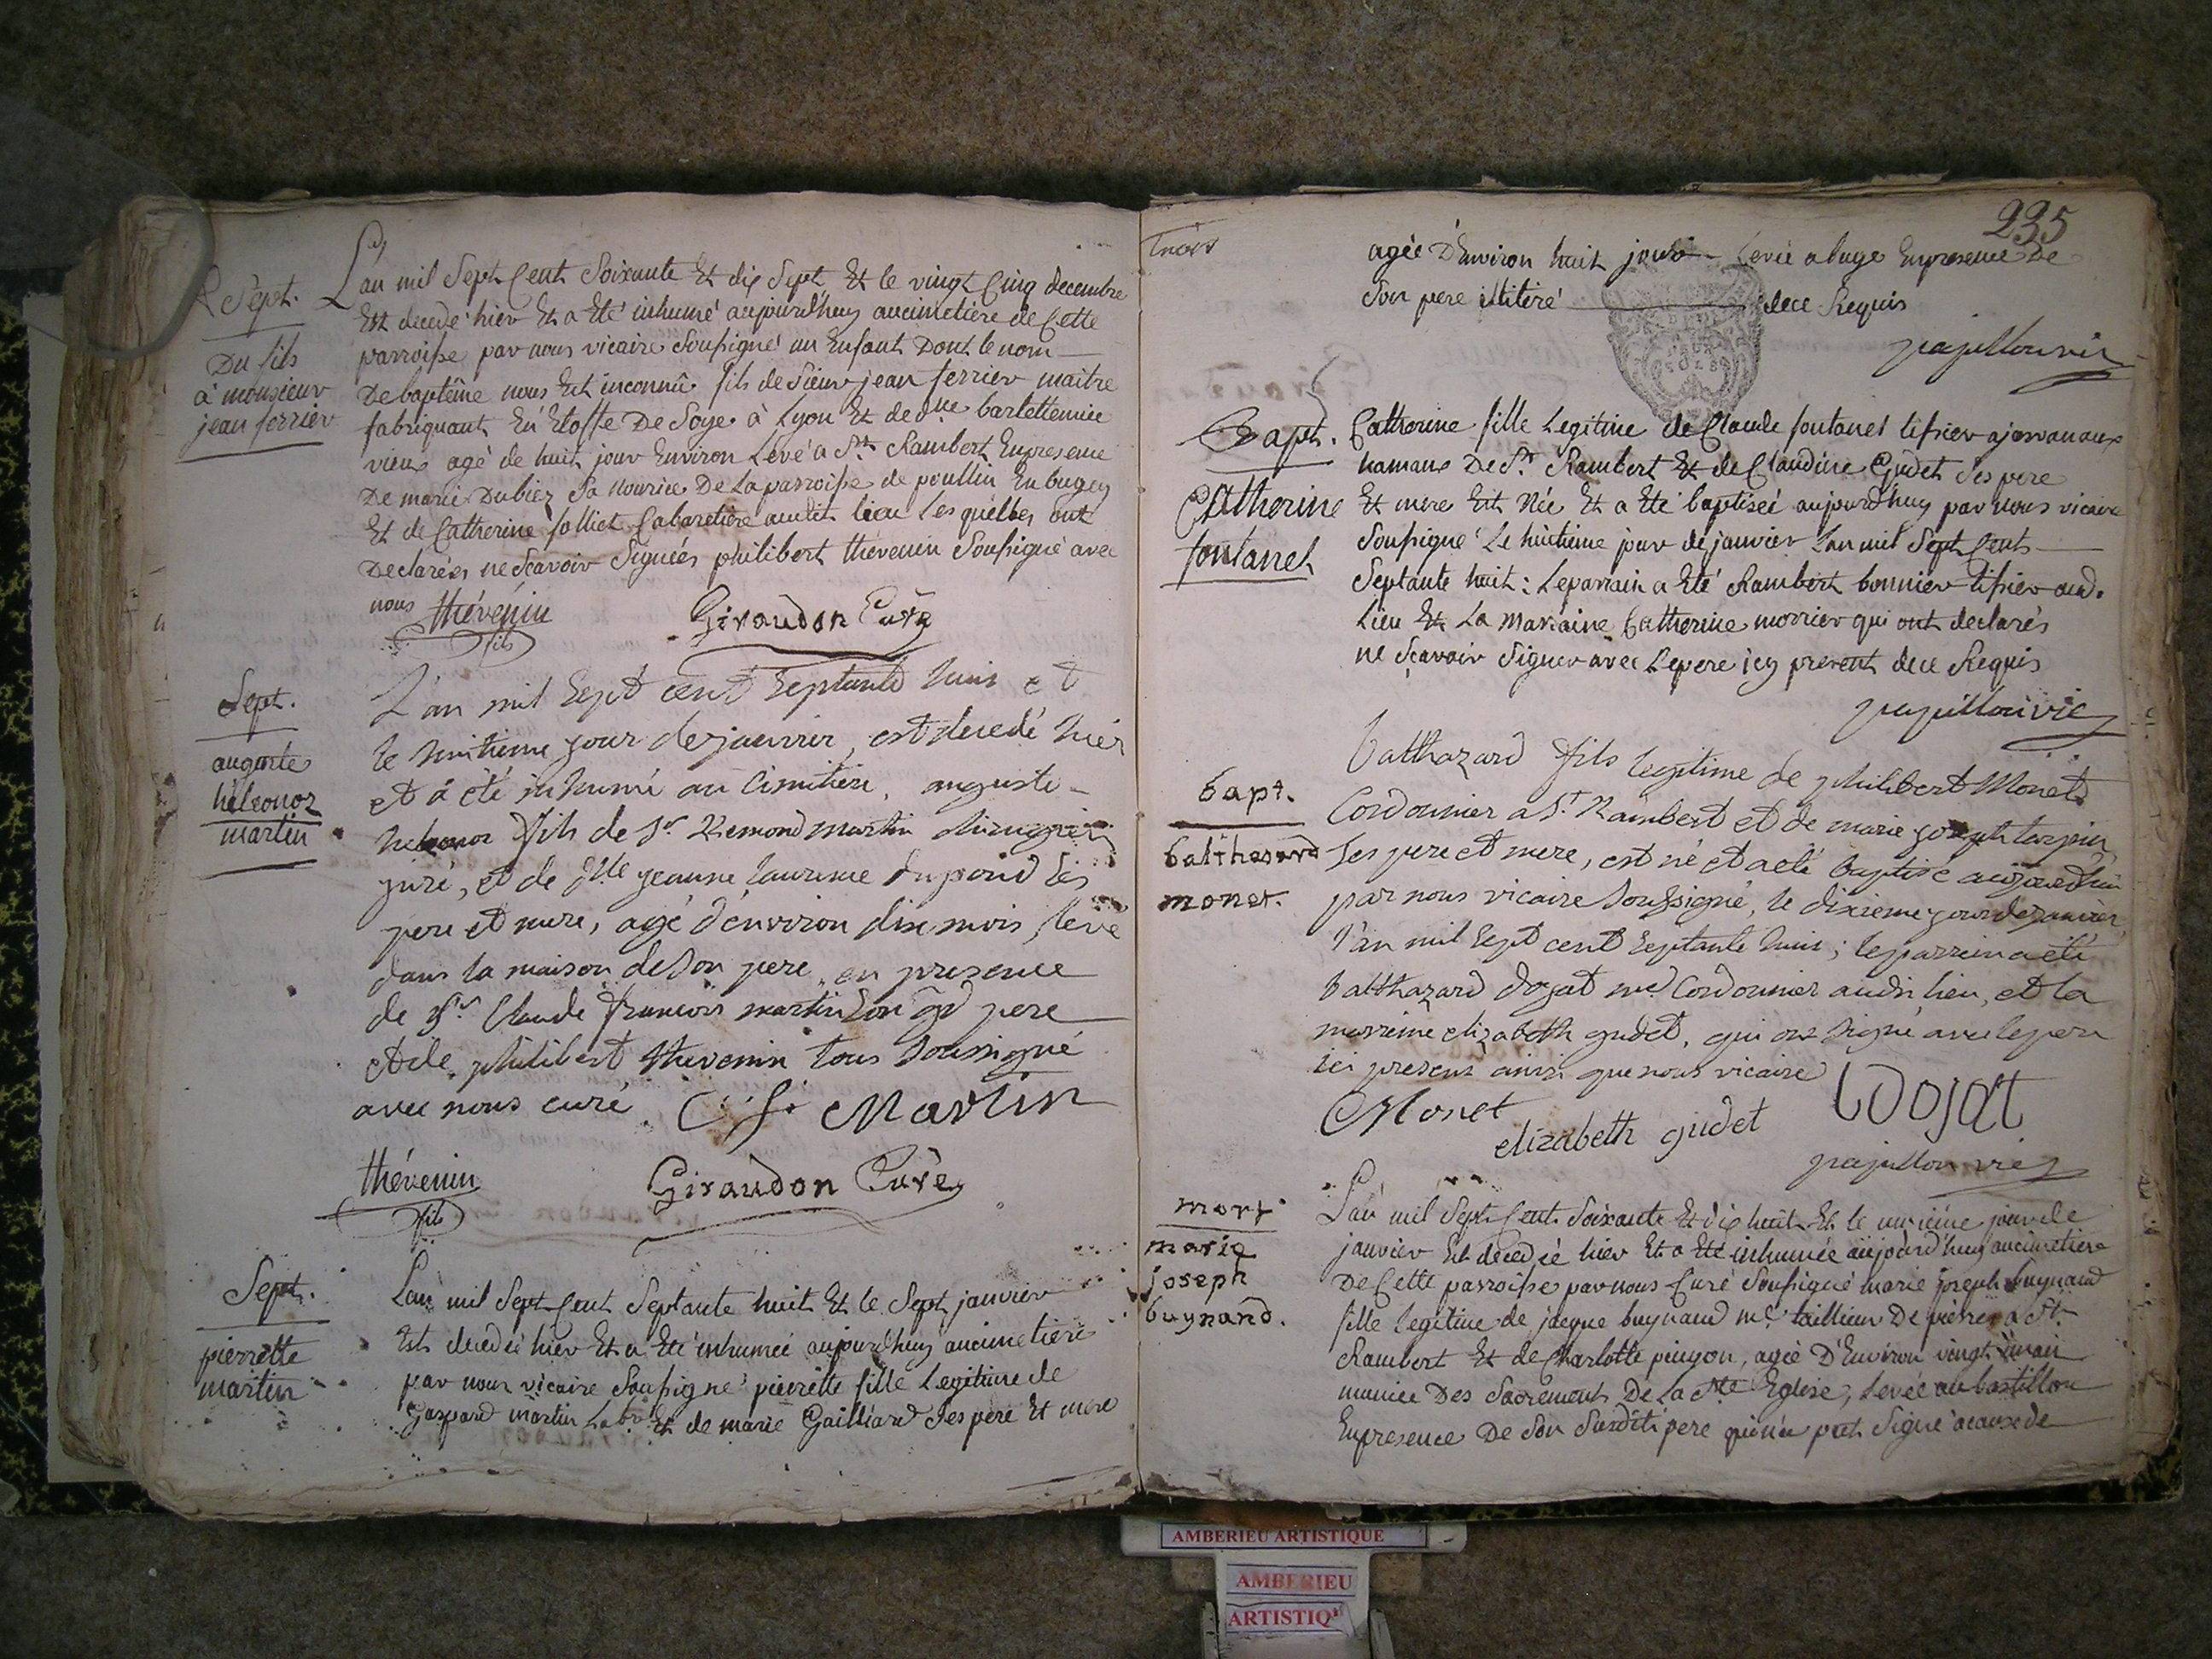 Sept.
Du fils
à monsieur
jean ferrier
L'an mil Sept Cent Soixante Et dix Sept Et le vingt Cinq decembre
Est decedé hier Et a Eté inhumé aujourd'huy aucimetiere de Cette
parroisse par nous vicaire Soussigné un Enfant Dont le nom
De baptême nous Est inconnû fils de Sieur jean ferrier maitre
fabriquant En Etoffe De Soye à Lyon Et de dlle barlettemiee
vieux agé de huit jour Environ Levé a St Rambert Enpresence
De marie Dubiez Sa Nourice De La parroisse de poullin En bugey
Et de Catherine folliet Cabaretière audit lieu Lesquelles ont
Declarées ne Scavoir Signées philibert thévenin Soussigné avec
nous thévénin
fils
Giraudon Curé
Sept.
auguste
héleonor
martin
L'an mil Sept cent Septante huis et
le huitieme jour de janvier, est decedé hier
et à été inhumé au Cimitiere, auguste
heleonor fils de Sr Remond martin chirugien
juré, et de dlle jeanne laurence dupond ses
pere et mere, agé d'environ dix mois, levé
dans la maison de Son pere, en presence
de Sr Claude francois martin Son gd pere
et de philibert thevenin tous Soussigné
avec nous curé. C. f. Martin
thévenin
fils
Giraudon Curé
Sept.
pierrette
martin
L'an mil Sept Cent Septante huit Et le Sept janvier
Est decedée hier Et a Eté inhumée aujourdhuy aucimetiere
par nour vicaire Soussigné pierrette fille Legitime de
Gaspard martin Labr Et de marie Gailliard Ses pere Et mere
235
agée D'Environ huit jours Levée a buge Enpresence De
Son pere illitéré dece Requis
papillon vic
Bapt.
Catherine
fontanel
Catherine fille Legitime de Claude fontanel tissier a javanaux
hamaux De St Rambert Et de Claudine Gudet Ses pere
Et mere Est Née Et a Eté baptiseé aujourdhuy par Nous vicaire
Soussigné Le huitieme jour de janvier Lan mil Sept Cents
Septante huit: Leparrain a Eté Rambert bonnier tissier aud.
Lieu Et La Marraine Catherine morrier qui ont declarés
ne Scavoir Signer avec Lepere icy present dece Requis
papillon vic
bapt.
balthasard
monet.
balthazard fils legitime de philibert Monet
Cordonnier a St Rambert et de marie joseph tarpin
ses pere et mere, est né et a eté baptisé aujourdhui
par nous vicaire Soussigné, le dixieme jour de janvier
l'an mil Sept cent Septante huis; le parrein a eté
balthazard dojat md Cordonnier audit lieu, et la
marreine elizabeth gudet, qui ont Signé avec le pere
ici present ainsi que nous vicaire
Monet
elizabeth gudet
bDojat
papillon vic
mort
marie
joseph
buynand.
L'an mil Sept Cent Soixante Et dix huit Et le onzieme jour de
janvier Est decedée hier Et a Eté inhumée aujourd'huy aucimetiere
De Cette parroisse par nous Curé Soussigné marie joseph buynand
fille legitime de jacque buynand me taillieur De pierres a St
Rambert Et de Charlotte pingon, agée D'Environ vingt an
muniée Des Sacrements De La Ste Eglise, levée au bastillon
Enpresence De Son Susdit pere qui na put Signé acause de
AMBERIEU ARTISTIQUE
AMBERIEU
ARTISTIQ